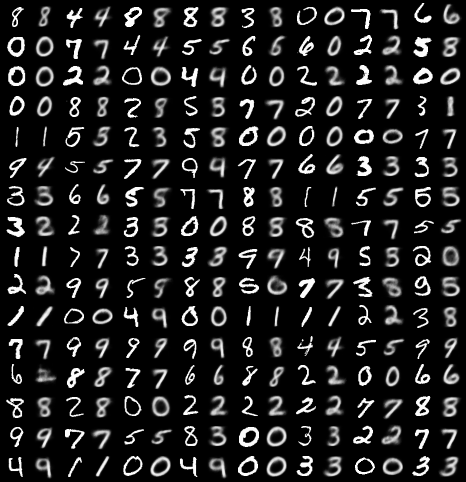 8 8 4 4 8 8 8 8 3 8 0 0 7 7 6 6
0 0 7 7 4 4 5 5 6 6 6 0 2 2 5 8
0 0 2 2 0 0 4 4 0 0 2 2 2 2 0 0
0 0 8 8 2 8 5 3 7 7 2 0 7 7 3 1
1 1 5 5 2 3 5 8 0 0 0 0 0 0 7 7
9 4 5 5 7 7 9 9 7 7 6 6 3 3 3 3
3 3 6 6 5 5 7 7 8 8 1 1 5 5 5 5
3 2 2 2 3 3 0 0 8 8 8 8 7 7 5 5
1 1 7 7 3 3 3 3 9 9 4 9 5 5 2 0
2 2 9 9 5 9 8 8 5 0 7 7 3 8 9 5
1 1 0 0 4 9 0 0 1 1 1 1 2 2 3 8
7 7 9 9 9 9 9 9 8 8 4 4 5 5 9 9
6 8 8 7 7 6 6 8 8 2 2 0 0 6 6
8 8 2 8 0 0 2 2 2 2 2 2 7 7 8 8
9 9 7 7 5 5 8 3 0 0 3 3 2 2 7 7
4 9 1 1 0 0 4 9 0 0 3 3 0 0 3 3